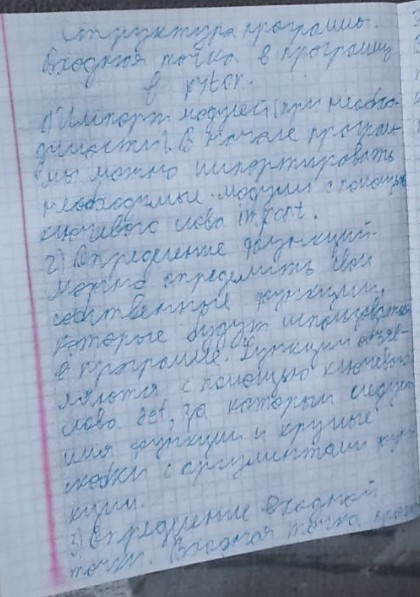 Структура программы.
Входная точка в программу
в pyton.
1) Импорт модулей (при необхо-
димости). В начале програм-
мы можно импортировать
необходимые модули с помощью
ключевого слова import.
2) Определение функций.
Можно определить свои
собственные функции,
которые будут использоваться
в программе. Функции объяв-
ляются с помощью ключевого
слова def, за которым следует
имя функции и круглые
скобки с аргументами функ
кции.
3) Определение входной
точки. Входная точка